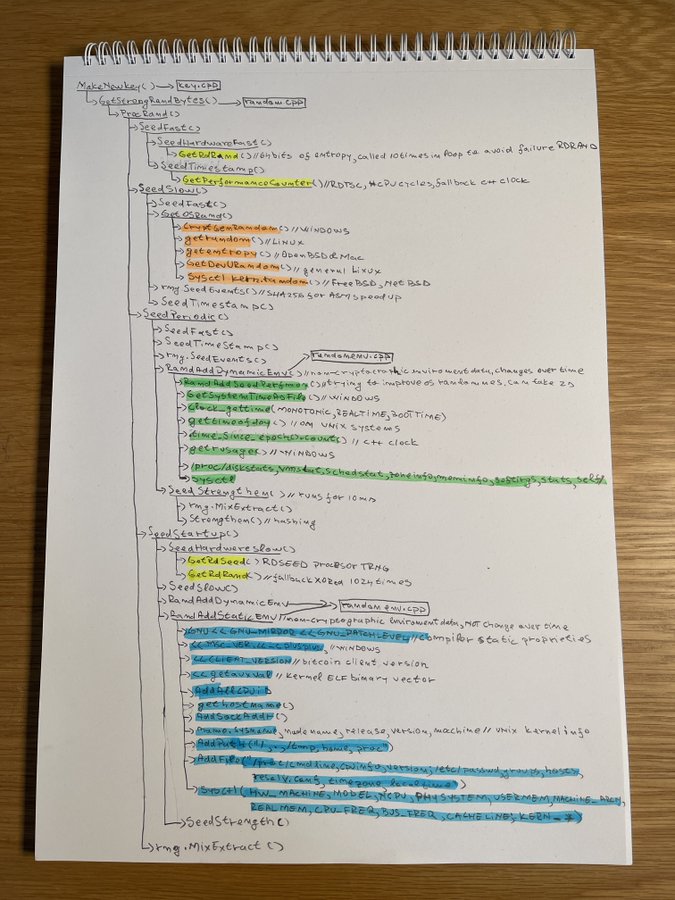 MakeNewKey() → key.cpp
GetStrongRandBytes() → random.cpp
ProcRand()
SeedFast()
SeedHardwareFast()
GetRdRand() // 64bits of entropy, called 10 times in loop to avoid failure RDRAND
SeedTimestamp()
GetPerformanceCounter() // RDTSC, #CPU cycles, fallback c++ clock
SeedSlow()
SeedFast()
GetOSRand()
CryptGenRandom() // WINDOWS
getrandom() // LINUX
getentropy() // OpenBSD & Mac
GetDevURandom() // general Linux
Sysctl kern.random() // FreeBSD, NetBSD
rng.SeedEvents() // SHA256 for ASM speed up
SeedTimestamp()
SeedPeriodic()
SeedFast()
SeedTimeStamp()
rng.SeedEvents()
randomenv.cpp
RandAddDynamicEnv() // non-cryptocraphic enviroment data, changes over time
RandAddSeedPerfmon() // trying to improve os randomnes, can take 2s
GetSystemTimeAsFile() // WINDOWS
clock_gettime(MONOTONIC, REALTIME, BOOTTIME)
gettimeofday() // on UNIX systems
time_since_epoch().count() // C++ clock
getrusage() // WINDOWS
/proc/diskstats, vmstat, schedstat, zoneinfo, meminfo, softirqs, stats, self/
sysctl
SeedStrengthen() // runs for 10ms
rng.MixExtract()
Strengthen() // hashing
SeedStartup()
SeedHardwereSlow()
GetRdSeed() RDSEED processor TRNG
GetRdRand() // fallback XORed 1024 times
SeedSlow()
RandAddDynamicEnv → randomenv.cpp
RandAddStaticEnv // non-cryptographic enviroment data, NOT change over time
GNU << GNU_MINOR << GNU_PATCHLEVEL // compiler static proprieties
<< MSC_VER, << cplusplus, // WINDOWS
<< CLIENT_VERSION // bitcoin client version
<< getauxval // kernel ELF binary vector
AddAllCPUID
gethostname()
AddSockAddr()
uname: sysname, nodename, release, version, machine // unix kernel info
AddPath("/, ., /tmp, home, proc")
AddFile("/proc/cmdline, cpuinfo, version; /etc/passwd, groups, hosts,
resolv.conf, timezone, localtime")
Sysctl(HW_MACHINE, MODEL, NCPU, PHYSYSTEM, USERMEM, MACHINE_ARCH,
REALMEM, CPU_FREQ, BUS_FREQ, CACHELINE; KERN_*)
SeedStrength()
rng.MixExtract()